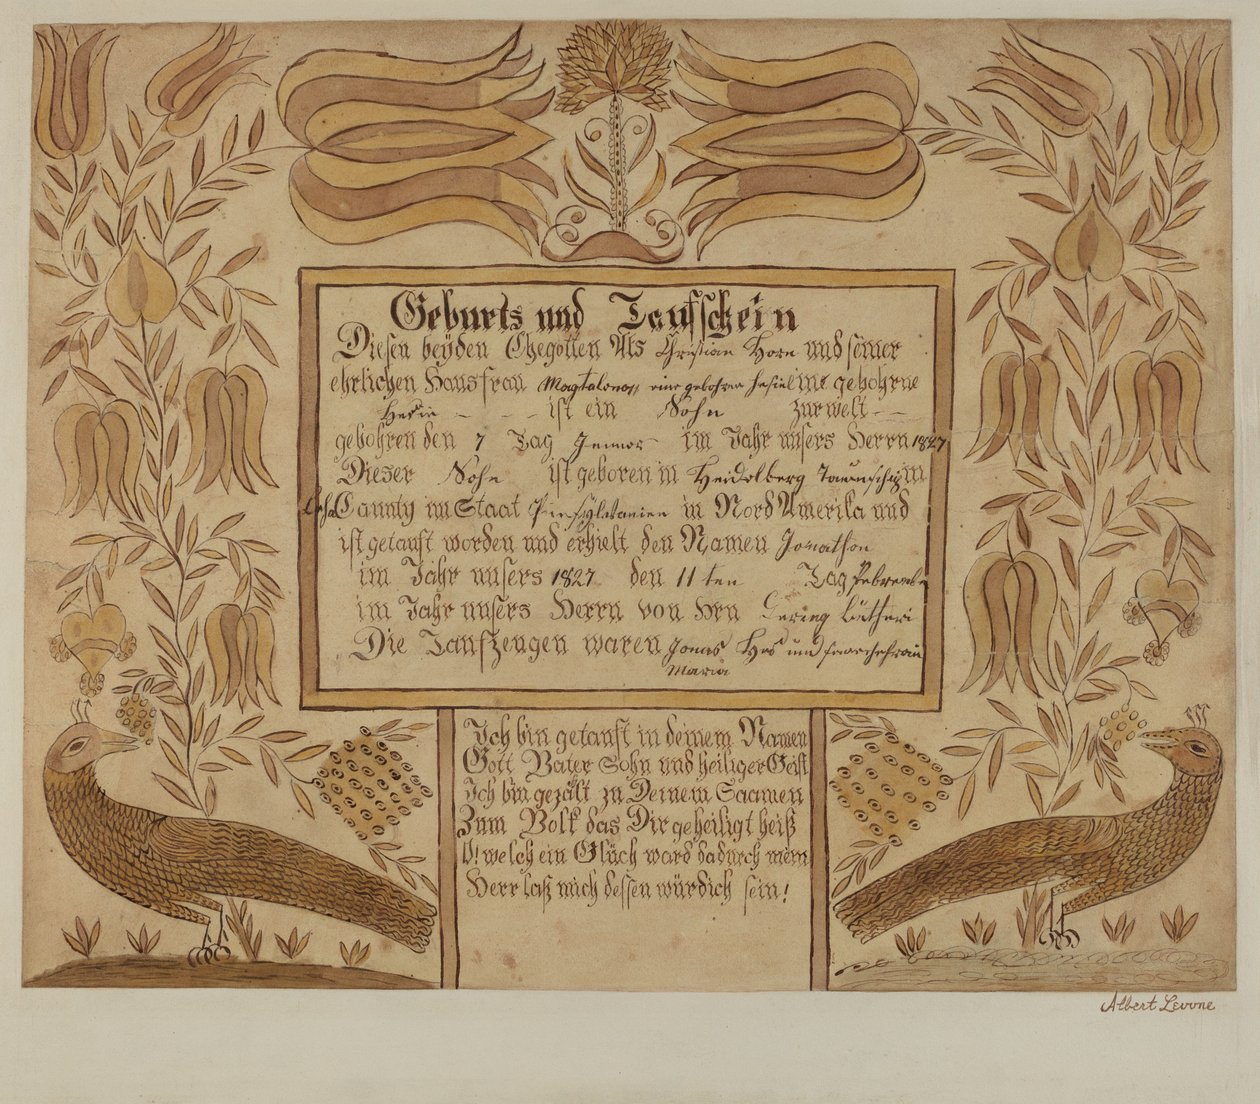 Geburts und Taufschein
Diesen beÿden Ehegotten Als Christian Horn und seiner
ehrlichen Hausfrau Magtalena eine gebohrne
ist ein Sohn zur welt
gebohren den 7 Tag Jenner im Jahr unsers Herrn 1827
Dieser Sohn ist geboren in Heidelberg Taunschip in
County im Staat Pensylvanien in Nord Amerika und
ist getauft worden und erhielt den Namen Jonathon
im Jahr unsers 1827 den 11 ten Tag
im Jahr unsers Herrn von Hrn
Die Taufzeugen waren Jonas Has und
Maria
Ich bin getauft in deinem Namen
Gott Vater Sohn und heiliger Geist
Ich bin gezält zu Deinem Saamen
Zum Volk das Dir geheiligt heiß
O! welch ein Glüch ward dadurch mein
Herr laß mich dessen würdich sein!
Albert Levone